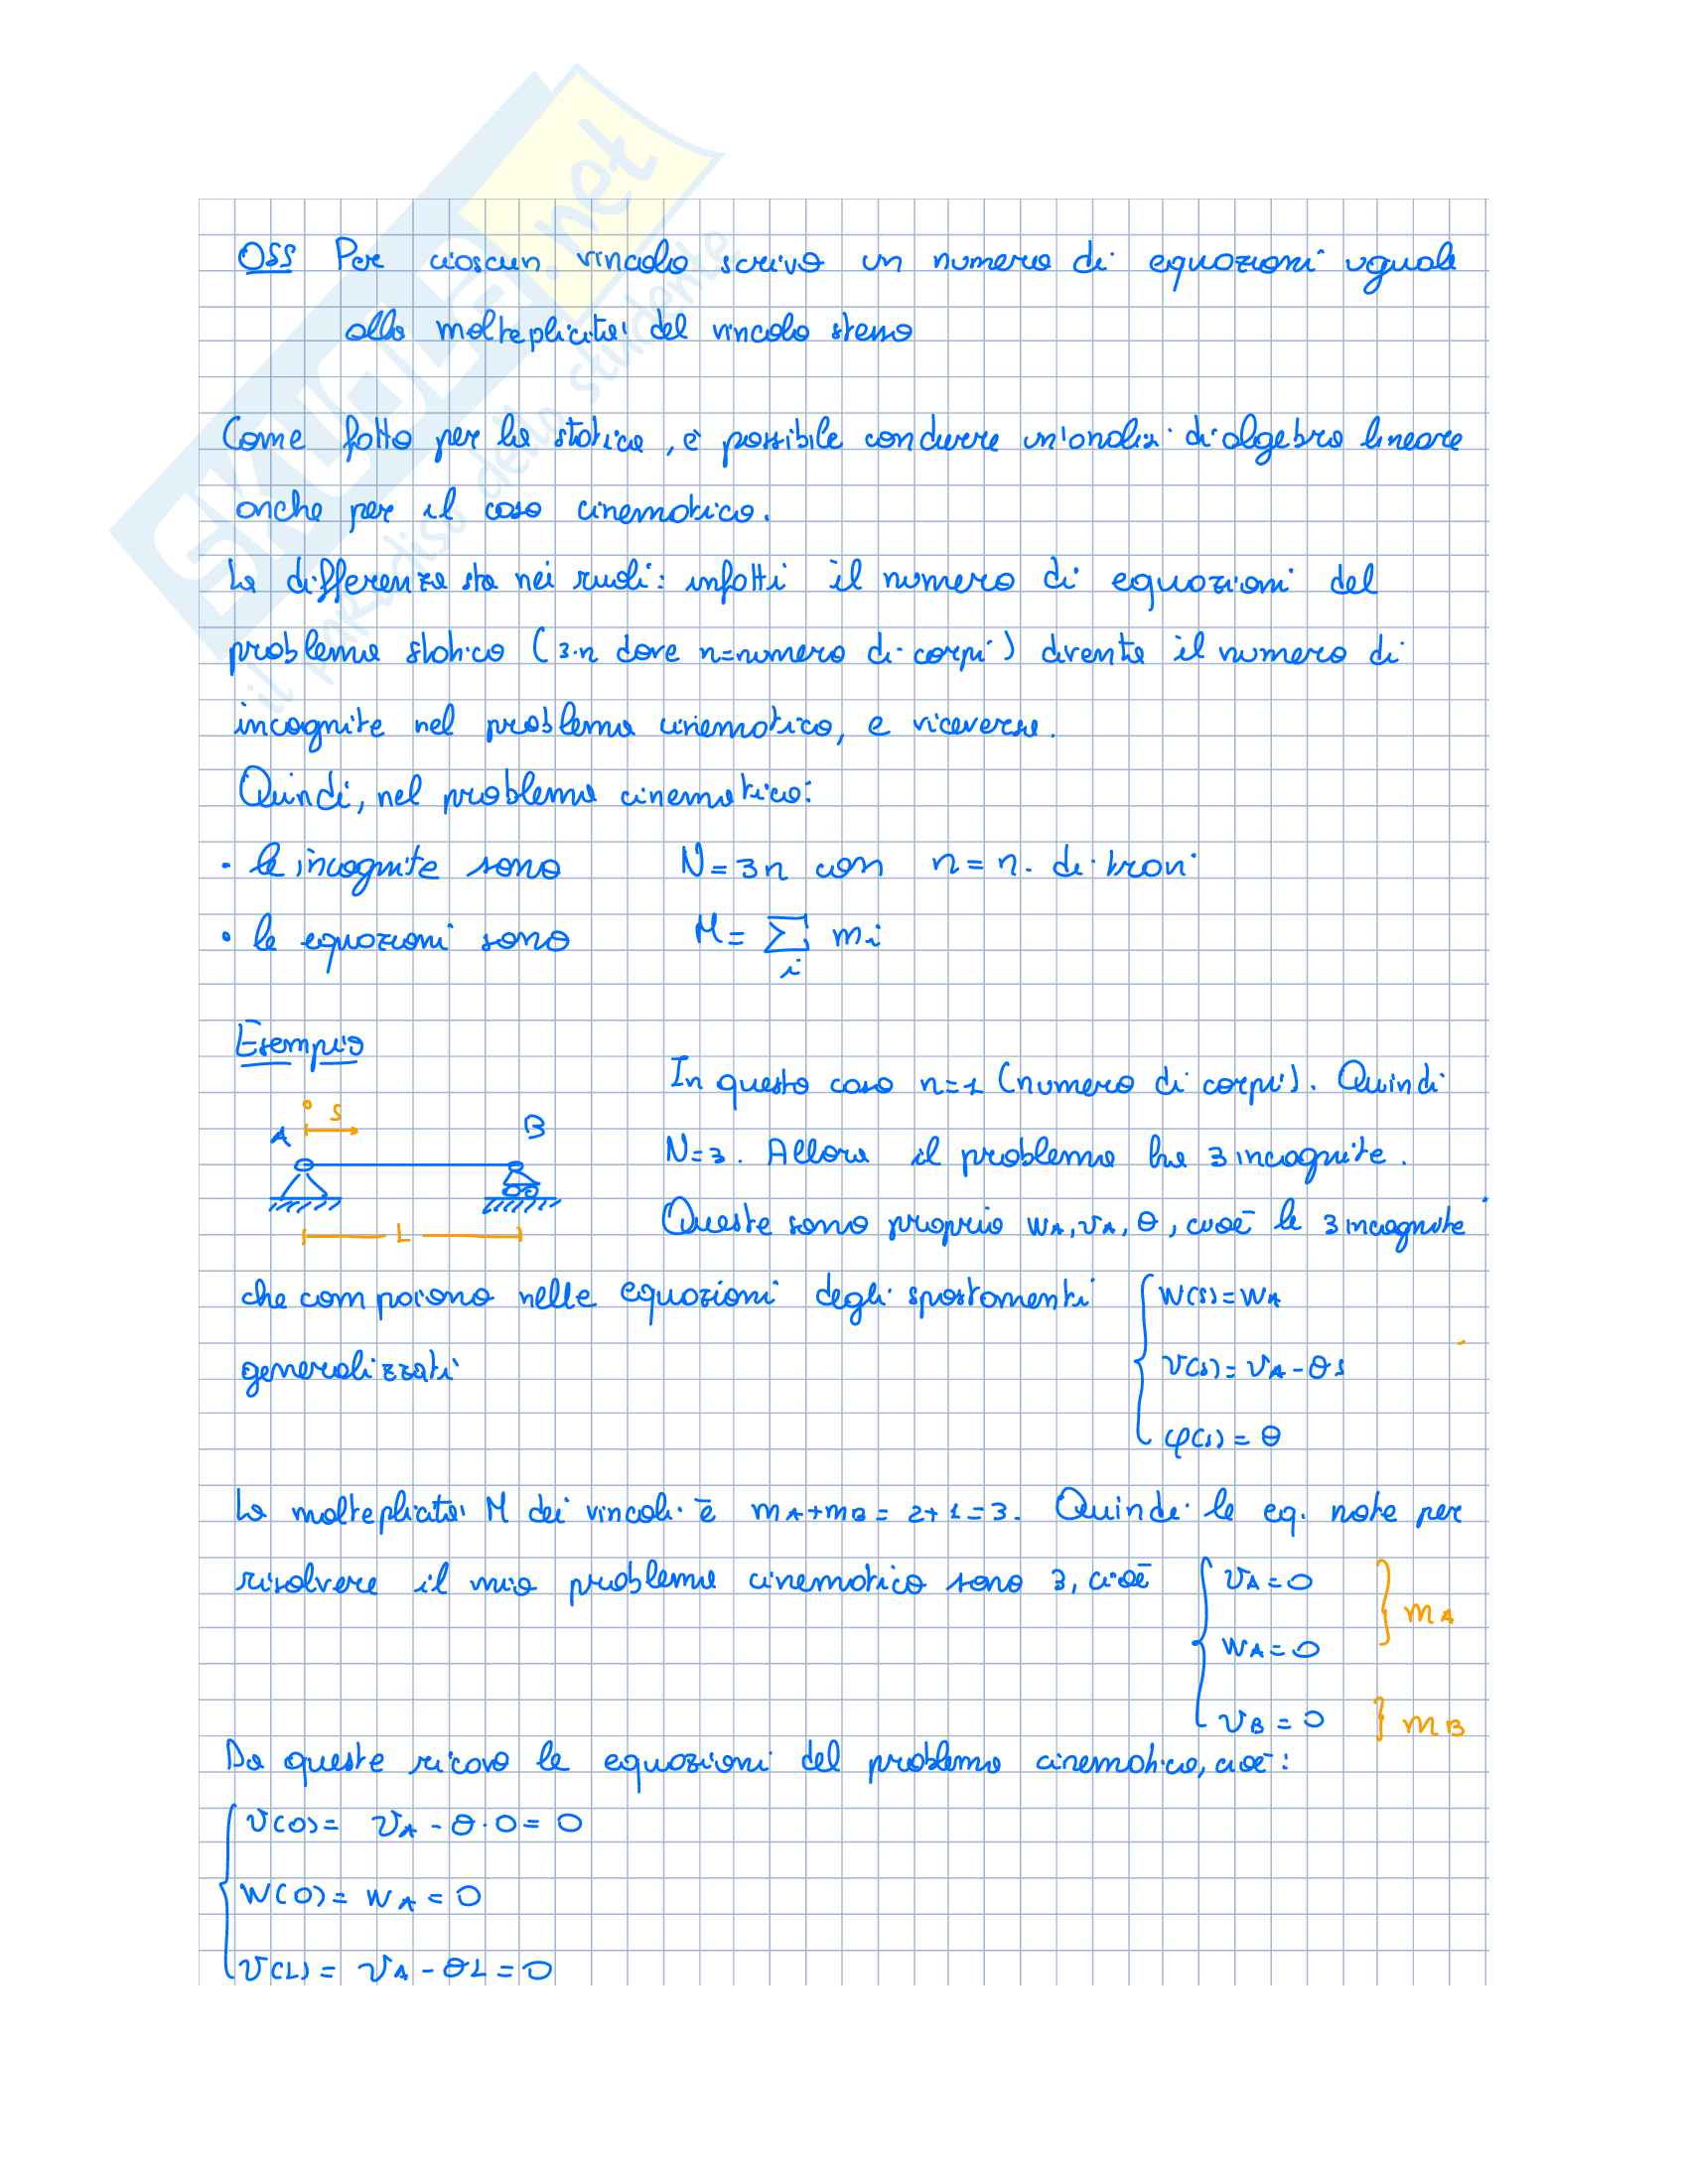 OSS Per ciascun vincolo scrivo un numero di equazioni uguale
alla molteplicità del vincolo stesso
Come fatto per la statica, è possibile condurre un'analisi di algebra lineare
anche per il caso cinematico.
La differenza sta nei ruoli: infatti il numero di equazioni del
problema statico (3·n dove n=numero di corpi) diventa il numero di
incognite nel problema cinematico, e viceversa.
Quindi, nel problema cinematico:
• le incognite sono N=3n con n=n. di travi
• le equazioni sono M= ∑i mi
Esempio
In questo caso n=1 (numero di corpi). Quindi
0 S
A B
N=3. Allora il problema ha 3 incognite.
Queste sono proprio wA, vA, θ, cioè le 3 incognite
L
che compaiono nelle equazioni degli spostamenti
generalizzati
w(s)=wA
v(s)=vA-θs
φ(s)=θ
La molteplicità M dei vincoli è mA+mB=2+1=3. Quindi le eq. note per
risolvere il mio problema cinematico sono 3, cioè
vA=0
wA=0
mA
vB=0 mB
Da queste ricavo le equazioni del problema cinematico, cioè:
v(0)= vA-θ·0=0
w(0)= wA=0
v(L)= vA-θL=0
SKUOLA.net
il paradiso dello studente